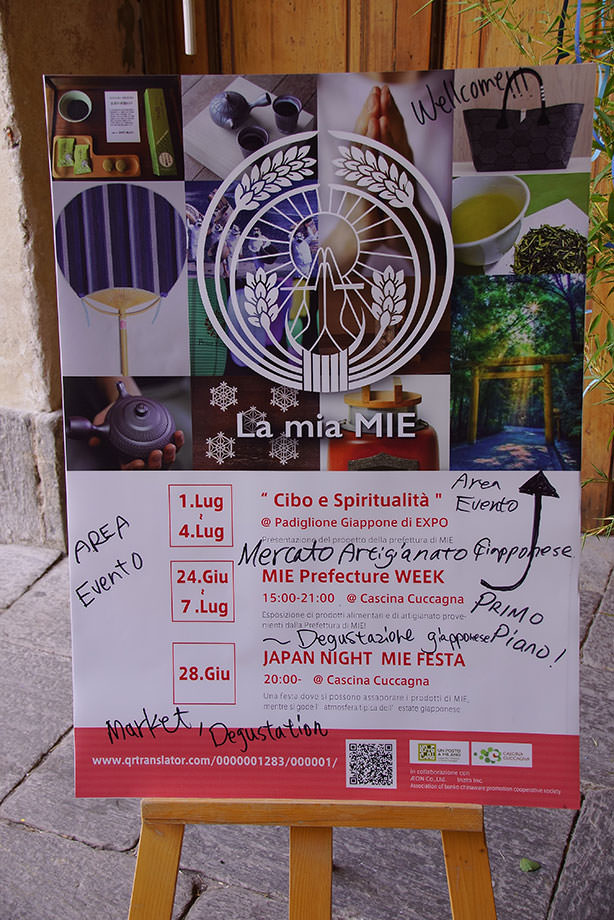 Wellcome!!!
La mia MIE
1.Lug
~
4.Lug
“ Cibo e Spiritualità "
@ Padiglione Giappone di EXPO
Presentazione del progetto della prefettura di MIE
Area
Evento
AREA
Evento
Mercato Artigianato Giapponese
24.Giu
~
7.Lug
MIE Prefecture WEEK
15:00-21:00 @ Cascina Cuccagna
Esposizione di prodotti alimentari e di artigianato prove-
nienti dalla Prefettura di MIE!
PRIMO
Piano!
~ Degustazione giapponese
28.Giu
JAPAN NIGHT MIE FESTA
20:00- @ Cascina Cuccagna
Una festa dove si possono assaporare i prodotti di MIE,
mentre si gode l' atmosfera tipica dell' estate giapponese
Market, Degustation
www.qrtranslator.com/0000001283/000001/
UN POSTO
A MILANO
CASCINA
CUCCAGNA
In collaborazione con
ÆON Co.,Ltd.
Association of banko chinaware promotion cooperative society